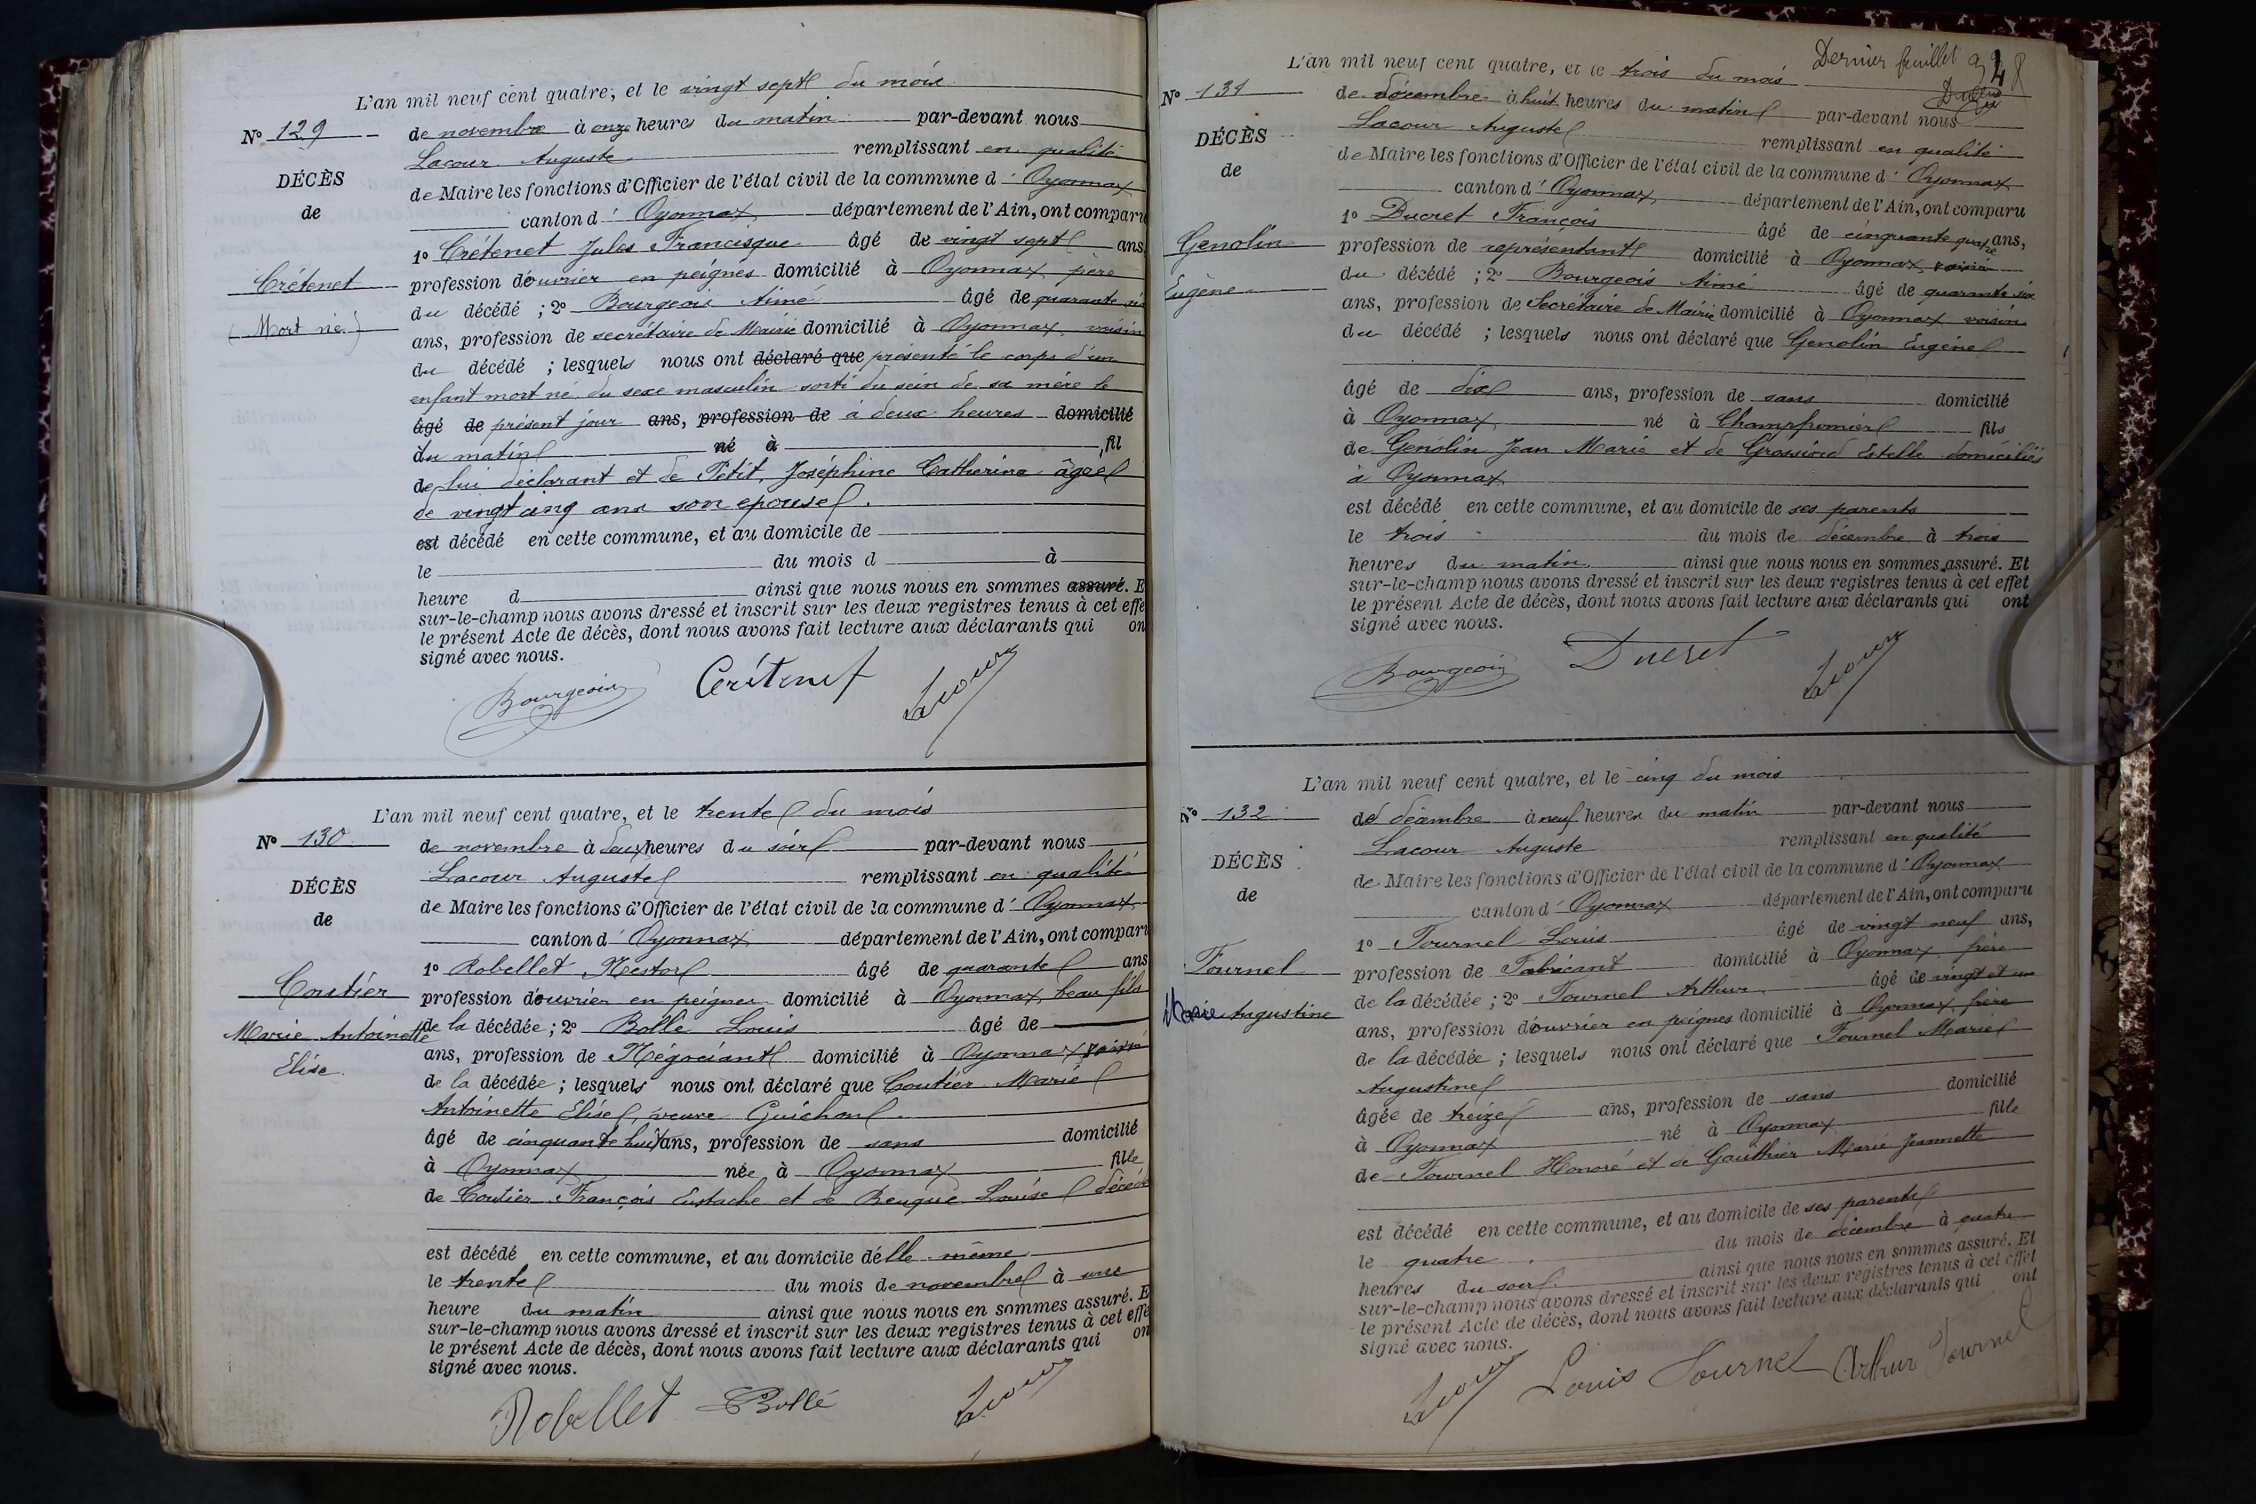 L'an mil neuf cent quatre, et le vingt sept du mois
Nº 129
de novembre à onze heures du matin par-devant nous
Lacour Auguste remplissant en qualité
DÉCÈS
de Maire les fonctions d'Officier de l'état civil de la commune d' Oyonnax
de
canton d' Oyonnax département de l'Ain, ont comparu
1º Crétenet Jules Francisque âgé de vingt sept ans
Crétenet
profession d'ouvrier en peignes domicilié à Oyonnax père
du décédé ; 2º Bourgeois Aimé âgé de quarante six
(Mort né)
ans, profession de secrétaire de Mairie domicilié à Oyonnax voisin
du décédé ; lesquels nous ont déclaré que présenté le corps d'un
enfant mort né du sexe masculin sorti du sein de sa mère le
âgé de présent jour ans, profession de à deux heures domicilié
du matin né à fil
de lui déclarant et de Petit, Joséphine Catherine âgée
de vingt cinq ans son épouse.
est décédé en cette commune, et au domicile de
le du mois d à
heure d ainsi que nous nous en sommes assuré. E
sur-le-champ nous avons dressé et inscrit sur les deux registres tenus à cet effe
le présent Acte de décès, dont nous avons fait lecture aux déclarants qui on
signé avec nous.
Bourgeois Crétenet Lacour
L'an mil neuf cent quatre, et le trente du mois
Nº 130
de novembre à deux heures du soir par-devant nous
Lacour Auguste remplissant en qualité
DÉCÈS
de Maire les fonctions d'Officier de l'état civil de la commune d' Oyonnax
de
canton d' Oyonnax département de l'Ain, ont comparu
1º Robellet Nestor âgé de quarante ans
Coutier
profession d'ouvrier en peignes domicilié à Oyonnax beau fils
de la décédée ; 2º Bollé Louis âgé de
Marie Antoinette
ans, profession de Négociant domicilié à Oyonnax voisin
Elise
de la décédée ; lesquels nous ont déclaré que Coutier Marie
Antoinette Elise, veuve Guichon
âgé de cinquante huit ans, profession de sans domicilié
à Oyonnax née à Oyonnax fille
de Coutier François Eustache et de Benque Louise décédés
est décédé en cette commune, et au domicile d'elle même
le trente du mois de novembre à une
heure du matin ainsi que nous nous en sommes assuré. E
sur-le-champ nous avons dressé et inscrit sur les deux registres tenus à cet effe
le présent Acte de décès, dont nous avons fait lecture aux déclarants qui on
signé avec nous.
Robellet Bollé Lacour
Dernier feuillet
L'an mil neuf cent quatre, et le trois du mois
Nº 131
de décembre à huit heures du matin par-devant nous
Lacour Auguste remplissant en qualité
DÉCÈS
de Maire les fonctions d'Officier de l'état civil de la commune d' Oyonnax
de
canton d' Oyonnax département de l'Ain, ont comparu
1º Ducret François âgé de cinquante quatre ans,
Genolin
profession de représentant domicilié à Oyonnax voisin
du décédé ; 2º Bourgeois Aimé âgé de quarante six
Eugène
ans, profession de Secrétaire de Mairie domicilié à Oyonnax voisin
du décédé ; lesquels nous ont déclaré que Genolin Eugène
âgé de dix ans, profession de sans domicilié
à Oyonnax né à Champfromier fils
de Genolin Jean Marie et de Grossiord Estelle domiciliés
à Oyonnax
est décédé en cette commune, et au domicile de ses parents
le trois du mois de décembre à trois
heures du matin ainsi que nous nous en sommes assuré. Et
sur-le-champ nous avons dressé et inscrit sur les deux registres tenus à cet effet
le présent Acte de décès, dont nous avons fait lecture aux déclarants qui ont
signé avec nous.
Bourgeois Ducret Lacour
L'an mil neuf cent quatre, et le cinq du mois
Nº 132
de décembre à neuf heures du matin par-devant nous
Lacour Auguste remplissant en qualité
DÉCÈS
de Maire les fonctions d'Officier de l'état civil de la commune d' Oyonnax
de
canton d' Oyonnax département de l'Ain, ont comparu
1º Tournel Louis âgé de vingt neuf ans,
Tournel
profession de Fabricant domicilié à Oyonnax frère
de la décédée ; 2º Tournel Arthur âgé de vingt et un
Marie Augustine
ans, profession d'ouvrier en peignes domicilié à Oyonnax frère
de la décédée ; lesquels nous ont déclaré que Tournel Marie
Augustine
âgée de treize ans, profession de sans domicilié
à Oyonnax né à Oyonnax fille
de Tournel Honoré et de Gauthier Marie Jeannette
est décédé en cette commune, et au domicile de ses parents
le quatre du mois de décembre à quatre
heures du soir ainsi que nous nous en sommes assuré. Et
sur-le-champ nous avons dressé et inscrit sur les deux registres tenus à cet effet
le présent Acte de décès, dont nous avons fait lecture aux déclarants qui ont
signé avec nous.
Lacour Louis Tournel Arthur Tournel